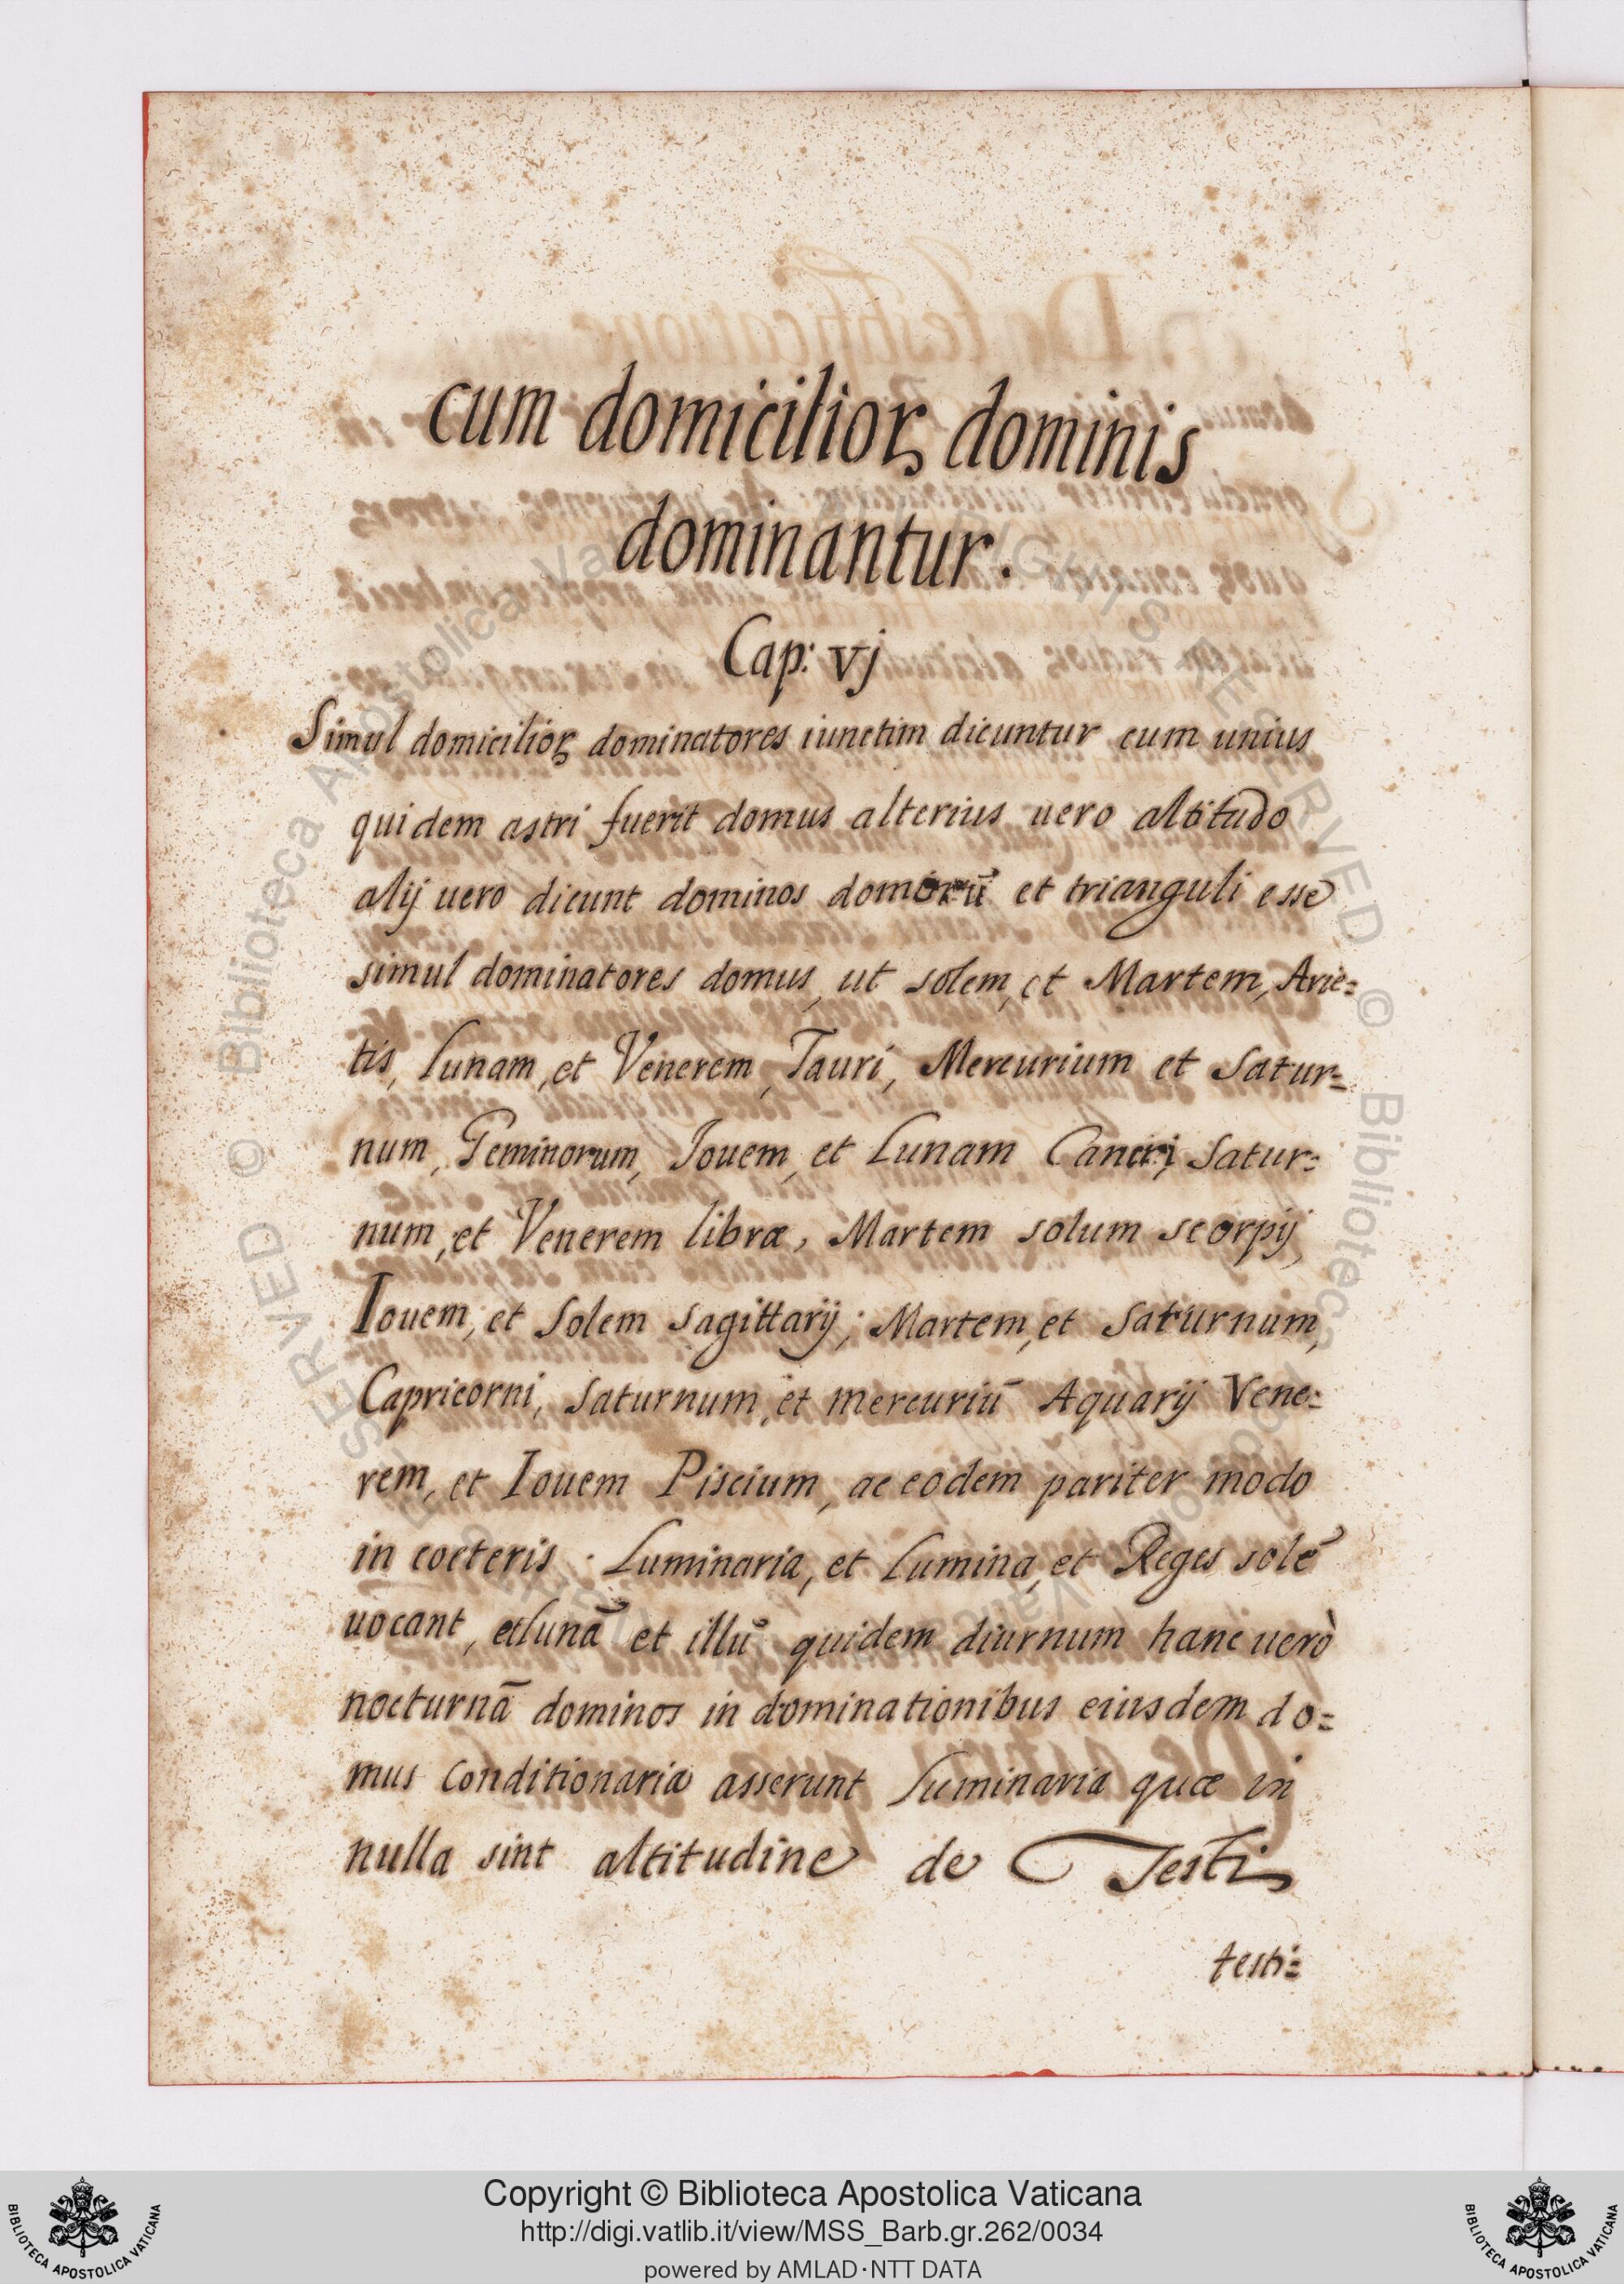 cum domicilioꝝ dominis
dominantur.
Cap: vj
Simul domicilioꝝ dominatores iunctim dicuntur cum unius
quidem astri fuerit domus alterius uero altitudo
alij uero dicunt dominos domorū et trianguli esse
simul dominatores domus, ut solem, et Martem, Arie=
tis, Lunam, et Venerem, Tauri, Mercurium et Satur=
num, Geminorum, Iouem, et Lunam Cancri, Satur=
num, et Venerem libræ, Martem solum scorpij,
Iouem, et Solem Sagittarij; Martem, et Saturnum,
Capricorni, Saturnum, et mercuriū Aquarij Vene=
rem, et Iouem Piscium, ac eodem pariter modo
in coeteris. Luminaria, et Lumina, et Reges solē
uocant, et lunā et illū quidem diurnum hanc uerò
nocturnā dominos in dominationibus eiusdem do=
mus conditionaria asserunt Luminaria quæ in
nulla sint altitudine de Testi
testi=
Copyright © Biblioteca Apostolica Vaticana
http://digi.vatlib.it/view/MSS_Barb.gr.262/0034
powered by AMLAD·NTT DATA
BIBLIOTECA APOSTOLICA VATICANA
BIBLIOTECA APOSTOLICA VATICANA